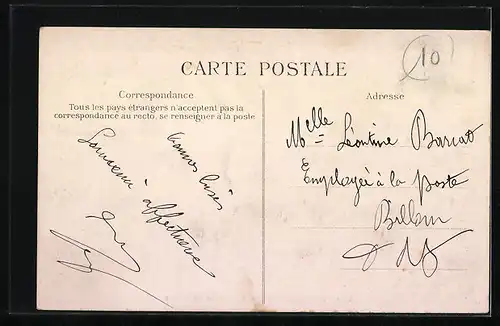 10
CARTE POSTALE
Correspondance
Tous les pays étrangers n'acceptent pas la
correspondance au recto, se renseigner à la poste
Adresse
Melle Léontine
Employée à la Poste
Billom
bonnes bises
affectueux